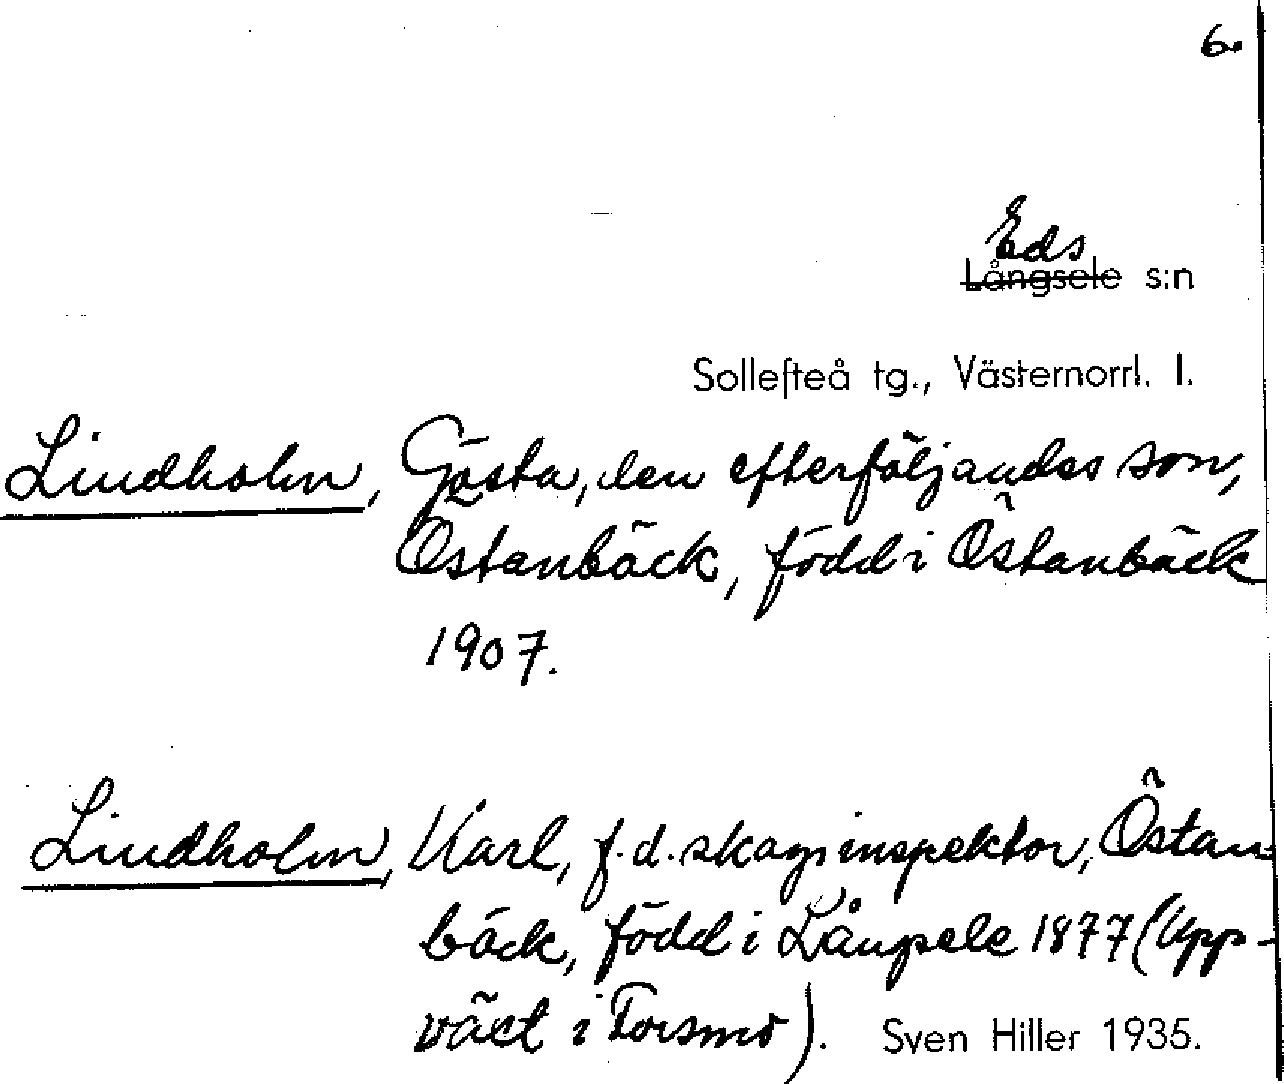 6.
Eds
Långsele s:n
Sollefteå tg., Västernorrl. l.
Lindholm, Gösta, den efterföljandes son,
Östanbäck, född i Östanbäck
1907.
Lindholm, Karl, f.d. skogsinspektor, Östan-
bäck, född i Långsele 1877 (Upp-
växt i Forsmo). Sven Hiller 1935.